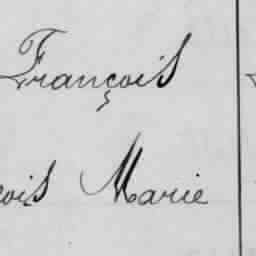 François
çois Marie